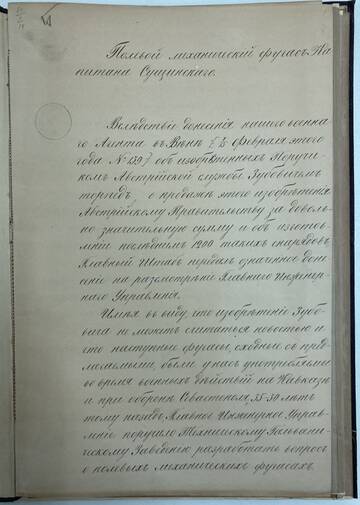 Полевой механическій фугасъ Ка-
питана Сущинскаго.
Вслѣдствіе донесенія нашего военна-
го Агента въ Вѣнѣ февраля этого
года № 139, объ изобрѣтенныхъ Поручи-
комъ Австрійской службы Зубовичемъ
торпедъ, о продажѣ этого изобрѣтенія
Австрійскому Правительству за доволь-
но значительную сумму и объ изготов-
леніи послѣднимъ 1200 такихъ снарядовъ,
Главный Штабъ передалъ означенное доне-
сеніе на разсмотрѣніе Главнаго Инженер-
наго Управленія.
Имѣя въ виду, что изобрѣтеніе Зубо-
вича не можетъ считаться новостью и
что наступные фугасы, сходные съ пред-
лагаемыми, были у насъ употребляемы
во время военныхъ дѣйствій на Кавказѣ
и при оборонѣ Севастополя, 35-30 лѣтъ
тому назадъ, Главное Инженерное Управ-
леніе поручило Техническому Гальвани-
ческому Заведенію разработать вопросъ
о полевыхъ механическихъ фугасахъ.